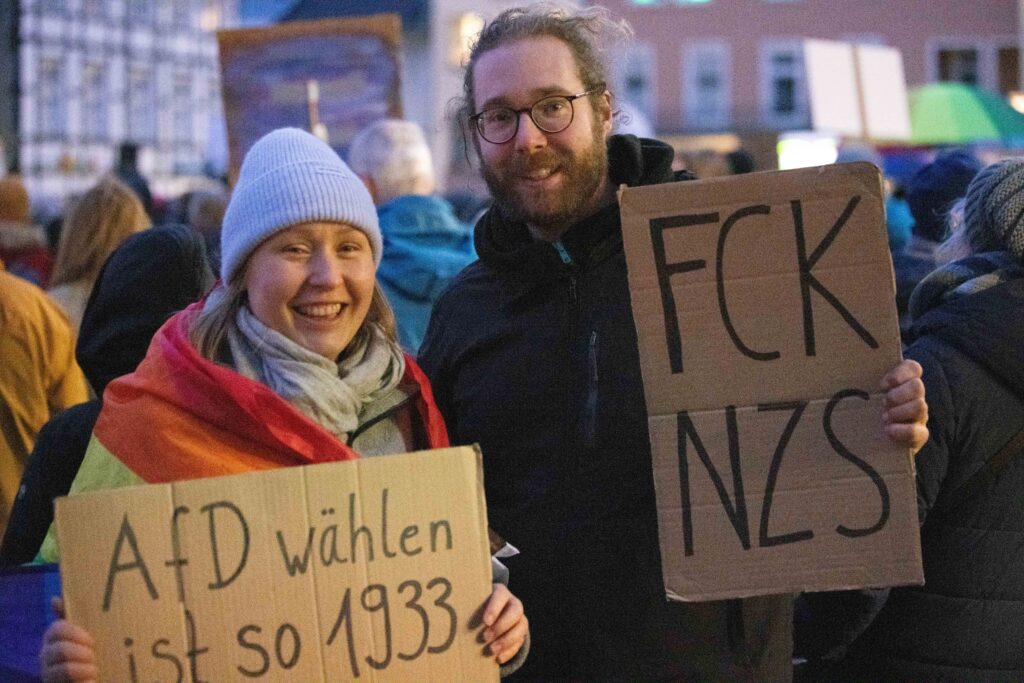 AfD wählen
ist so 1933
FCK
NZS